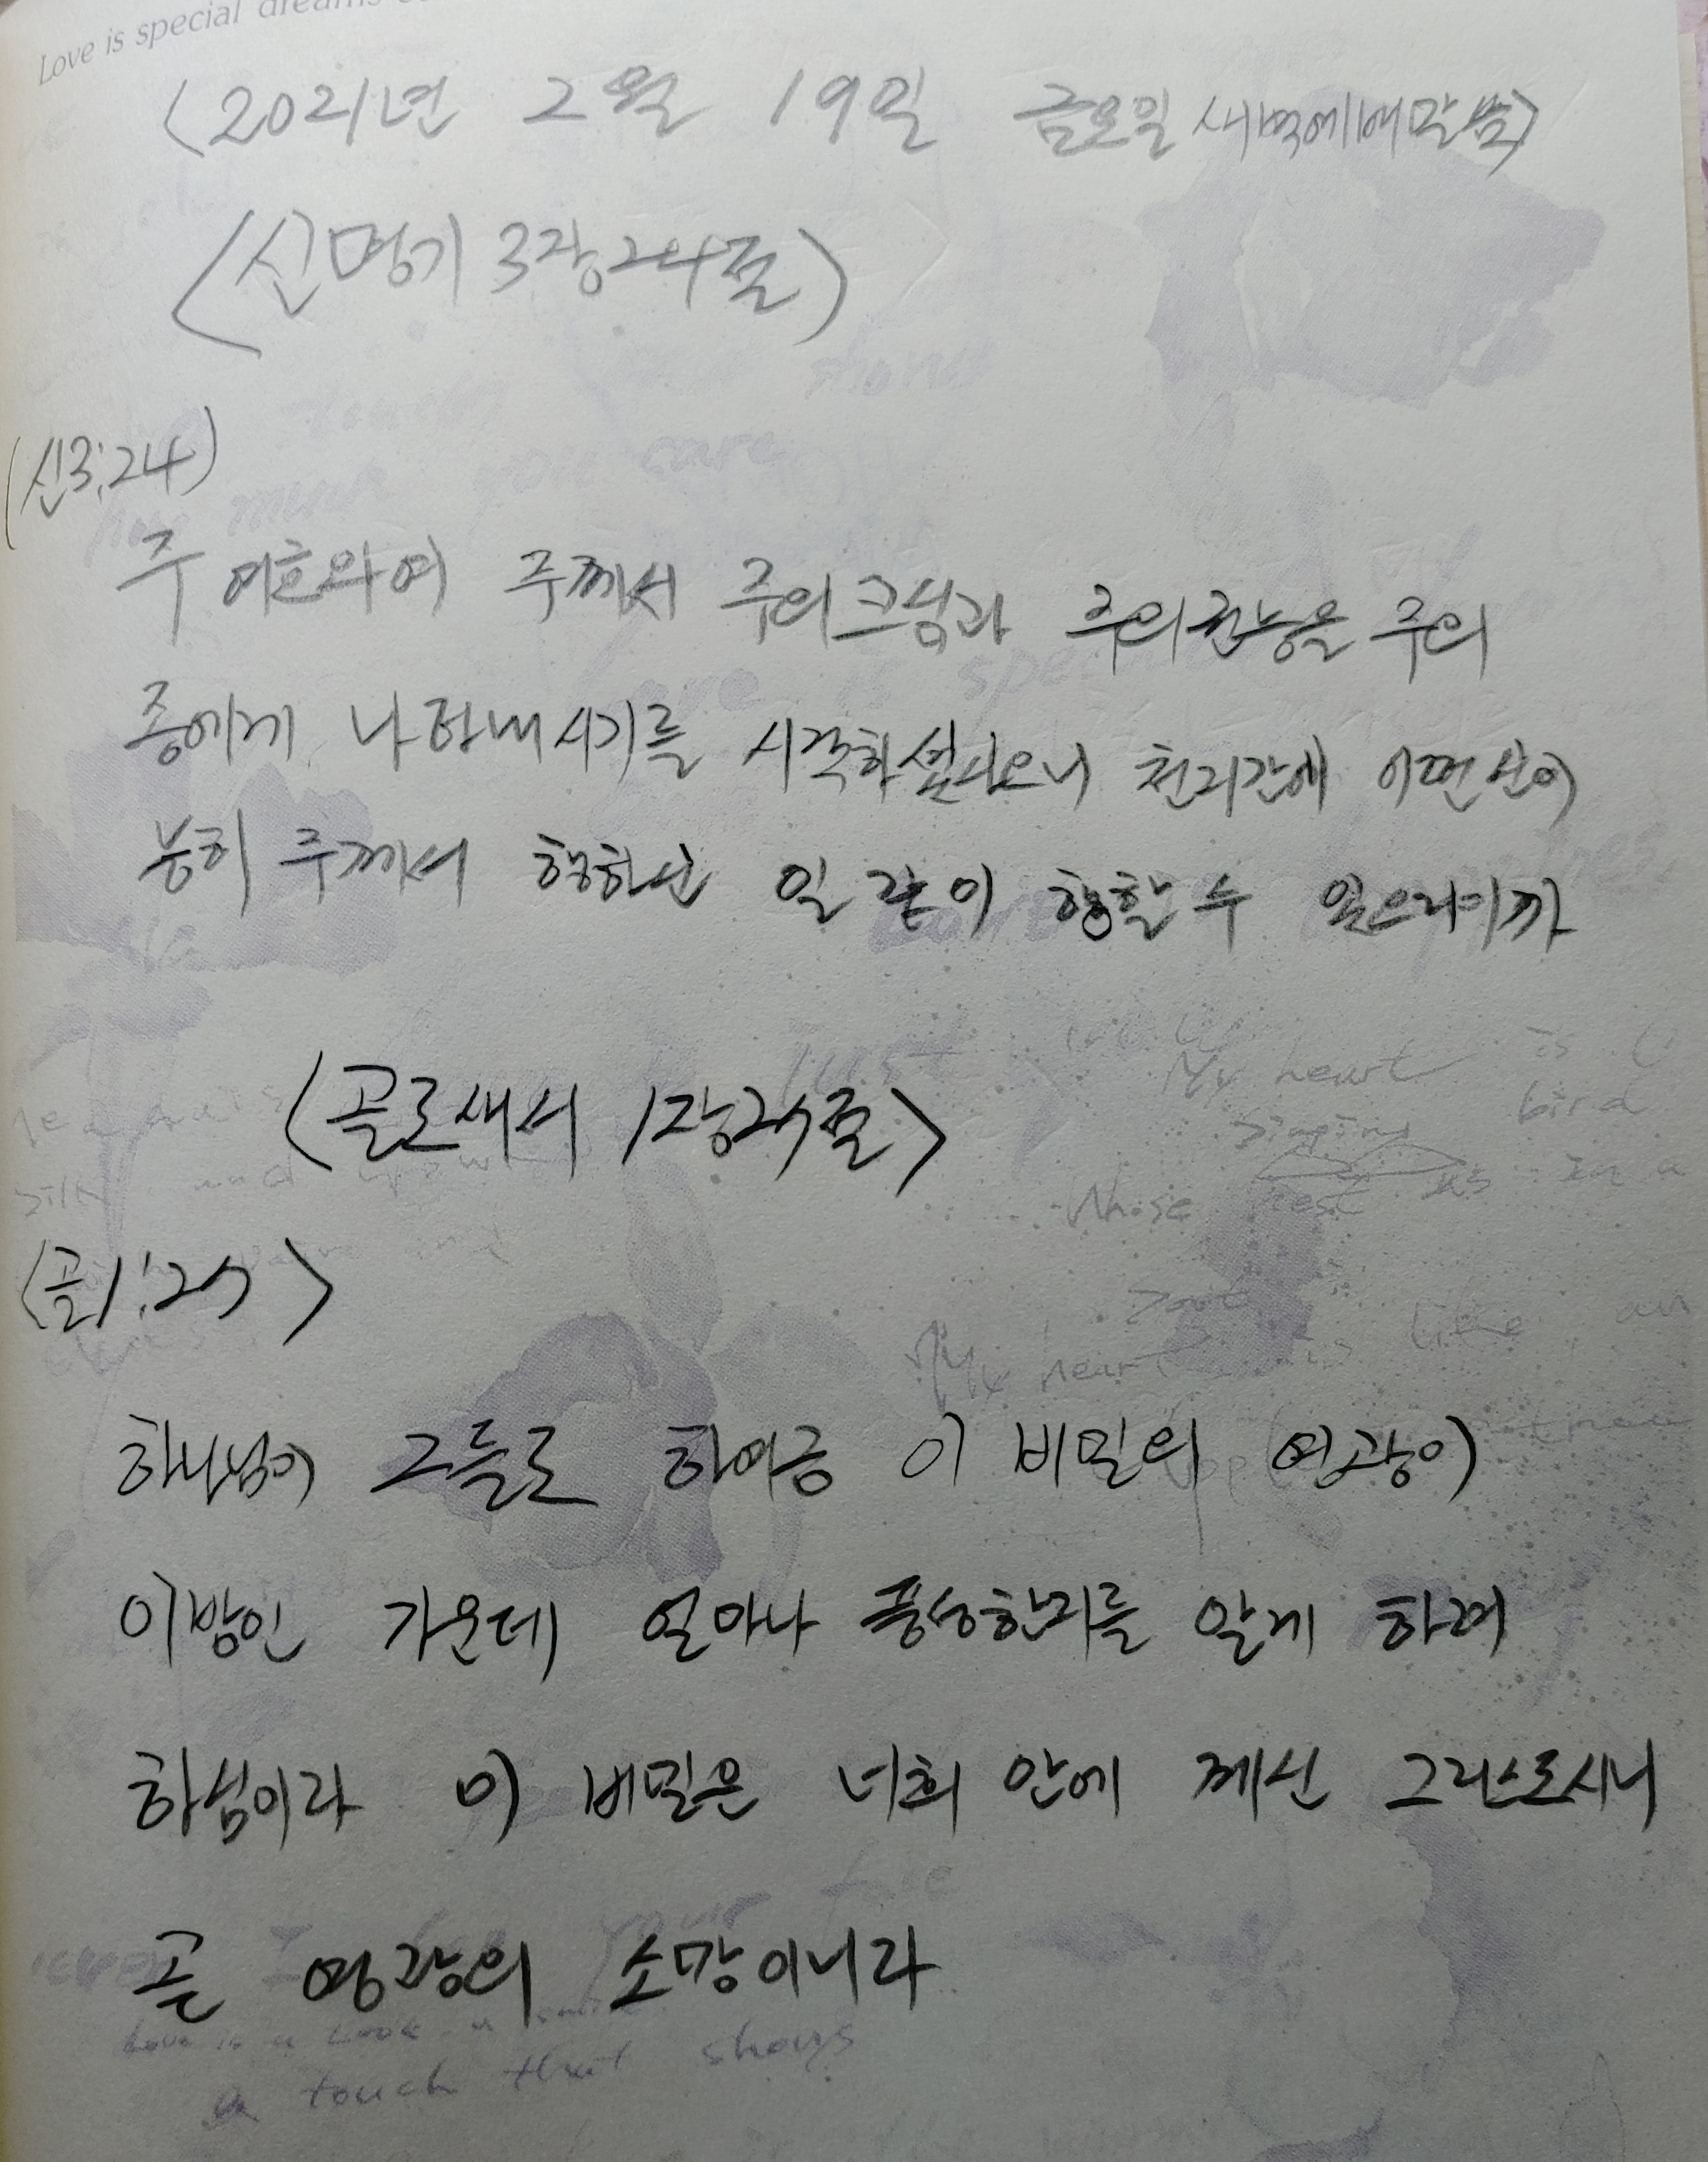 Love is special dreams
<2021년 2월 19일 금요일 새벽예배말씀>
<신명기 3장24절)
(신3:24)
주 여호와여 주께서 주의크심과 주의권능을 주의
종에게 나타내시기를 시작하셨사오니 천지간에 어떤신이
능히 주께서 행하신 일 같이 행할 수 있으리이까
<골로새서 1장27절>
<골1:27>
하나님이 그들로 하여금 이 비밀의 영광이
이방인 가운데 얼마나 풍성한지를 알게 하려
하심이라 이 비밀은 너희 안에 계신 그리스도시니
곧 영광의 소망이니라
My heart is
singing bird
Whose nest is in a
My heart is like an
Love is a look a
a touch that shows